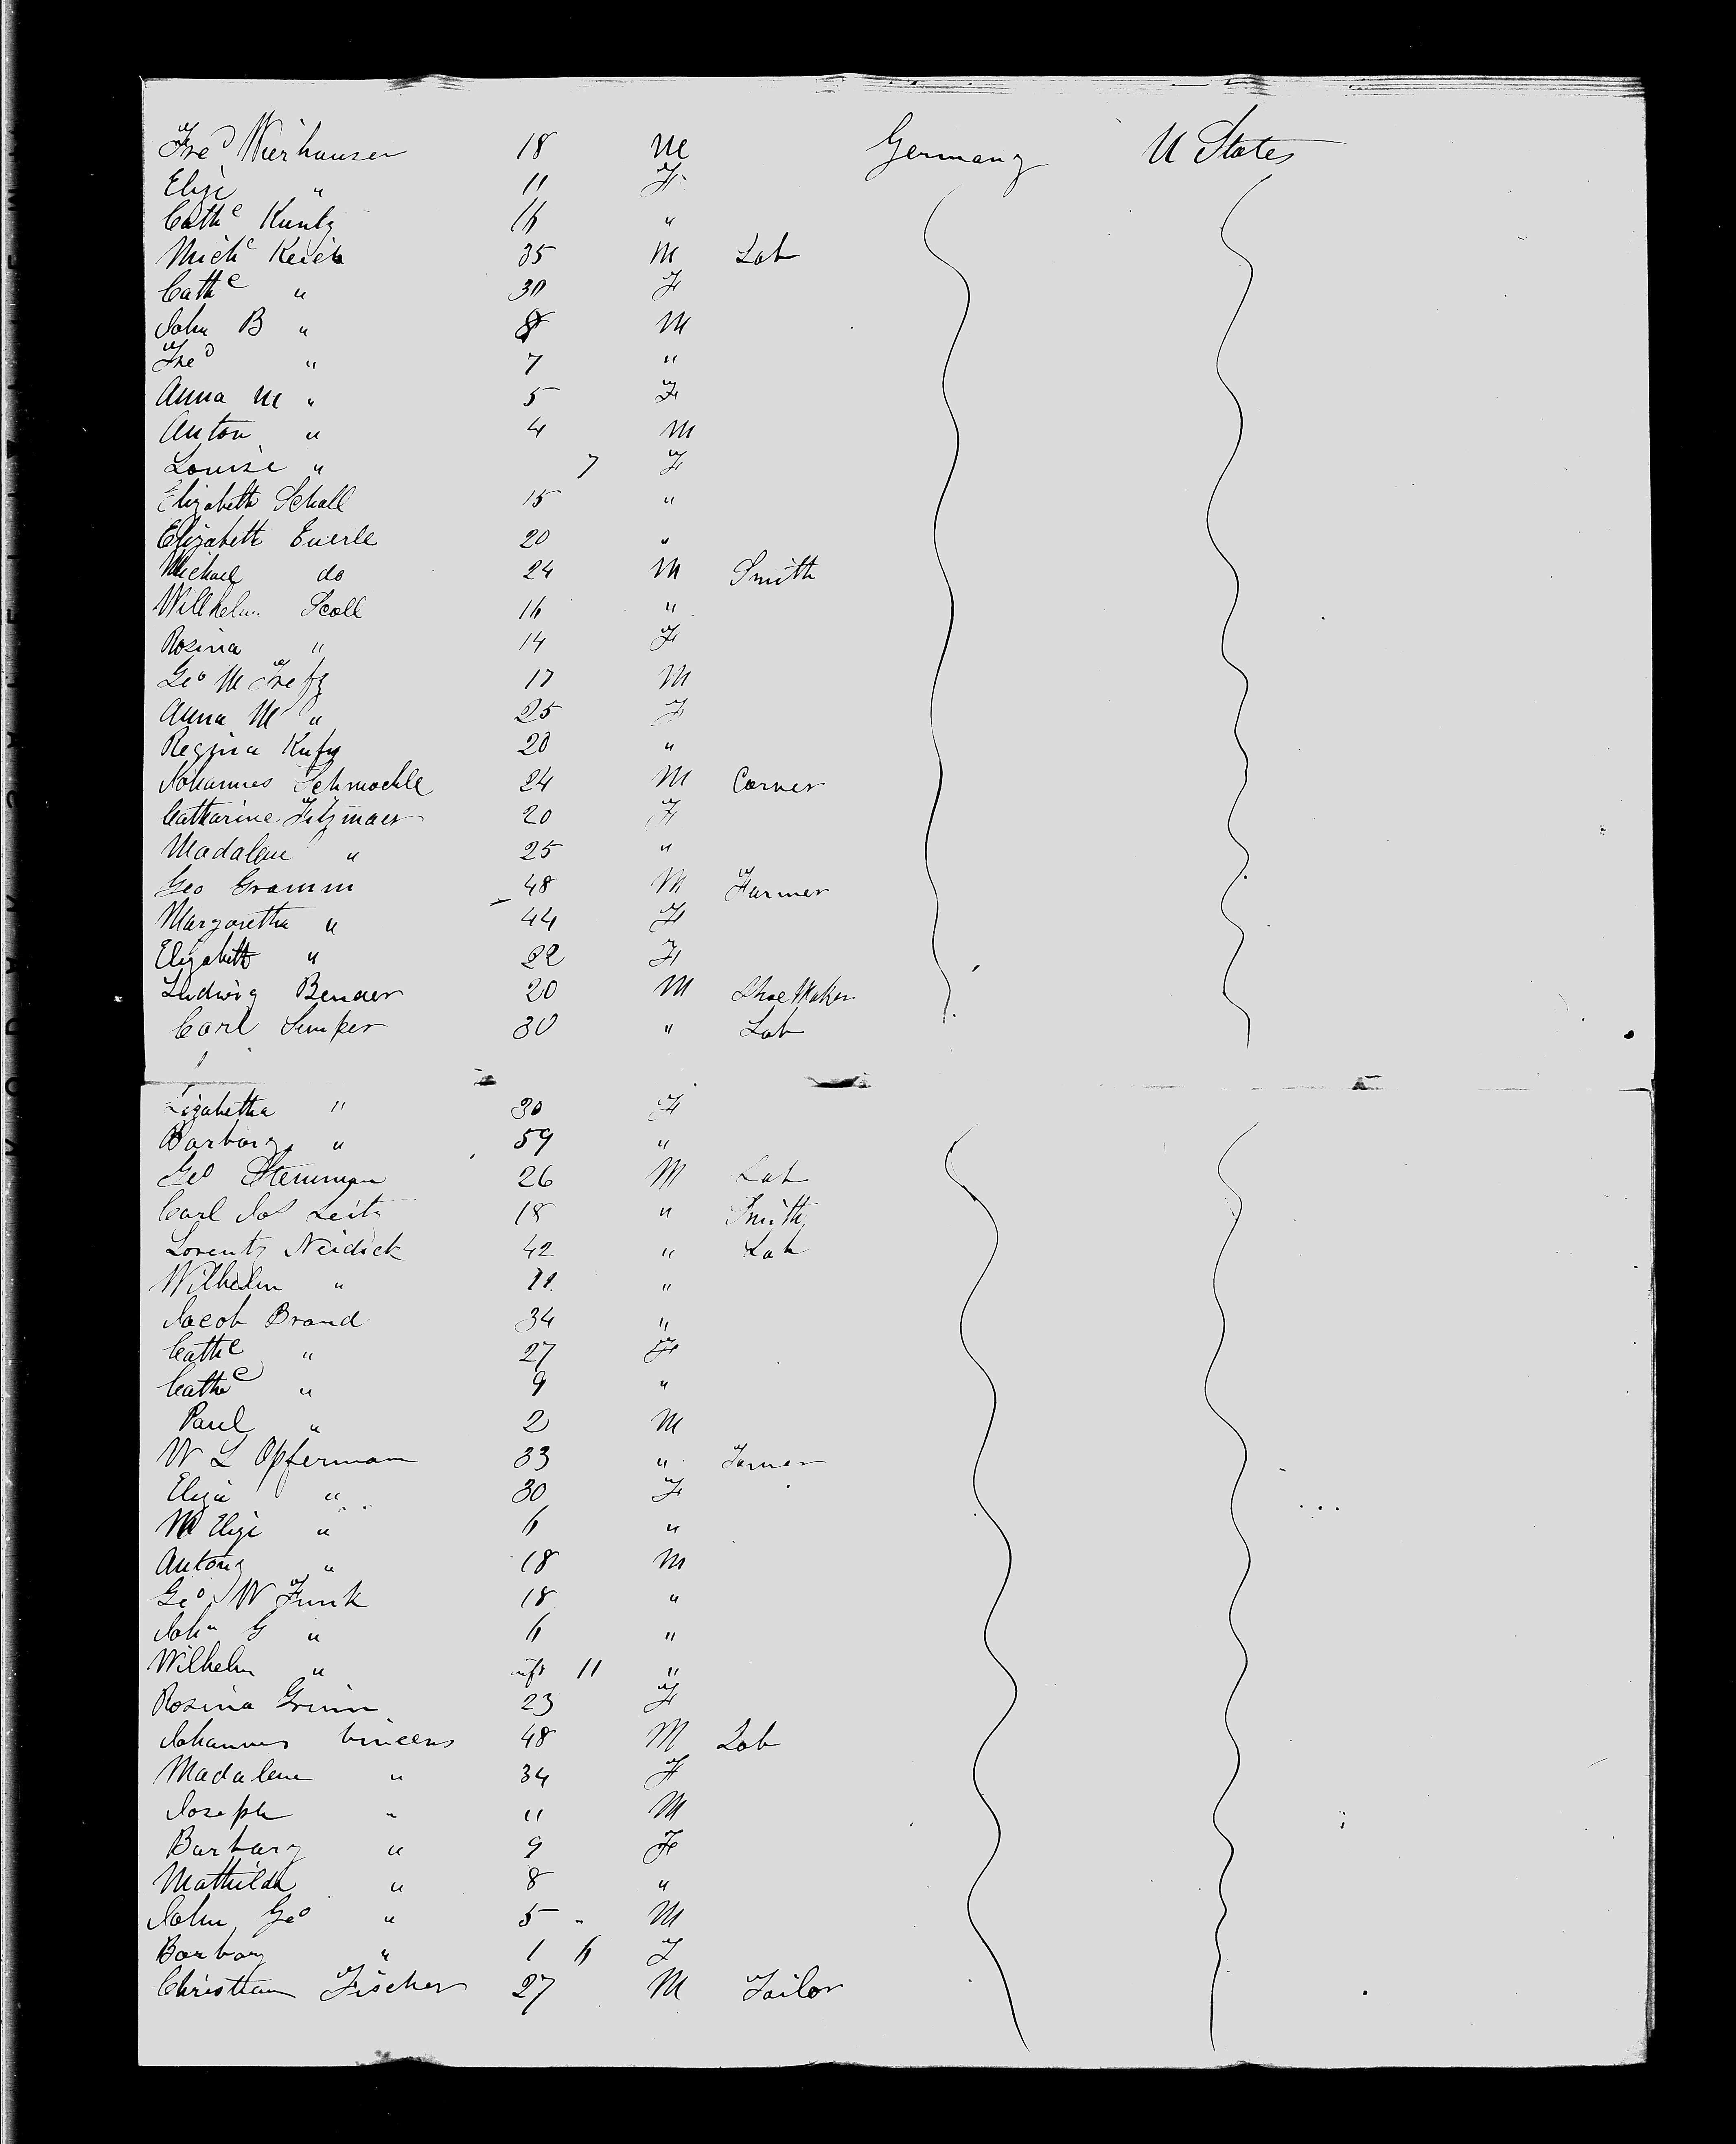 Fred Wierhauser 18 M Germany U States
Elize " 11 F
Cathe Kuntz 16 "
Michl Keich 35 M Lab
Cathe " 30 F
John B " 8 M
Fred " 7 "
Anna M " 5 F
Anton " 4 M
Louise " 7 F
Elizabeth Scholl 15 "
Elizabeth Euerle 20 "
Michael do 24 M Smith
Willhelm Scoll 16 "
Rosina " 14 F
Geo M Trefz 17 M
Anna M " 25 F
Regina 20 "
Johannes Schmoehle 24 M Carver
Catharine Fitzmaer 20 F
Madalene " 25 "
Geo Gramm 48 M Farmer
Margaretha " 44 F
Elizabeth " 22 F
Ludwig Bender 20 M Shoe Maker
Carl Semper 30 " Lab
Elizabetha " 30 F
Barbary " 59 "
Geo 26 M Lab
Carl Jos Leitz 18 " Smith
Lorentz Neidick 42 " Lab
Wilhelm " 11 "
Jacob Brand 34 "
Cathe " 27 F
Cathe " 9 "
Paul " 2 M
W L Opferman 33 " Farmer
Eliza " 30 F
M Elize " 6 "
Antony " 18 M
Geo W Funk 18 "
John G " 6 "
Wilhelm " inft 11 "
Rosina Grinn 23 F
Johannes Vincens 48 M Lab
Madalene " 34 F
Joseph " 11 M
Barbary " 9 F
Mathilda " 8 "
John Geo " 5 " M
Barbary " 1 6 F
Christian Fischer 27 M Tailor